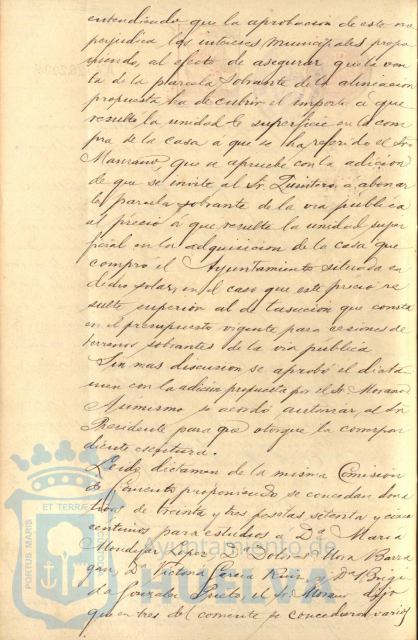 entendiendo que la aprobacion de este no
perjudica los intereses municipales propo
niendo, al efecto de asegurar que la ven
ta de la parcela sobrante de la alineacion
propuesta ha de cubrir el importe á que
resulte la unidad de superficie en la com
pra de la casa a que se ha referido el Sr
Manzano, que se apruebe con la adicion
de que se invite al Sr. Quintero, a abonar
la parcela sobrante de la via publica
al precio á que resulte la unidad super
ficial en la adquisicion de la casa que
compró el Ayuntamiento situada en
dicho solar, en el caso que este precio re
sulte superior al de tasacion que consta
en el presupuesto vigente para cesiones de
terrenos sobrantes de la via pública
Sin mas discusion se aprobó el dicta
men con la adicion propuesta por el Sr. Morano
Asimismo se acordó autorizar al Sr
Presidente para que otorgue la correspon
diente escritura.
Leido dictamen de la misma Comision
de Fomento proponiendo se concedan dona
tivos de treinta y tres pesetas setenta y cinco
centimos para estudios á Dª Maria
Mondejar Lopez, Dª Dolores Mora Barra
gan, Dª Victoria Garcia Ruiz, y Dª Brigi
da Gonzalez Prieto, el Sr. Morano dijo
que en tres del corriente se concedieron varios
PORTUS MARIS
ET TERRAE
Ayuntamiento de
HUELVA